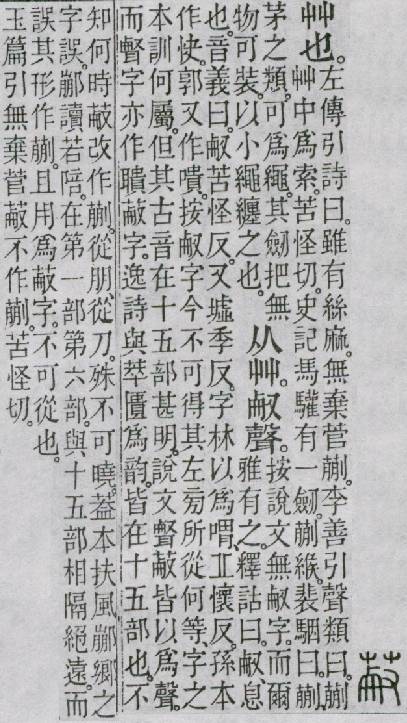 艸也。左傳引詩曰。雖有絲麻。無棄菅蒯。李善引聲類曰。蒯
艸中爲索。苦怪切。史記馮驩有一劒。蒯緱。裴駰曰。蒯
茅之類。可爲繩。其劒把無
物可裝。以小繩纏之也。
从艸。㕟聲。
按說文無㕟字。而爾
雅有之。釋詁曰。㕟、息
也。音義曰。㕟苦怪反。又墟季反。字林以爲喟、丠懷反。孫本
作快。郭又作嘳。按㕟字今不可得其左㫄所從何等、字之
本訓何屬。但其古音在十五部甚明。說文䏿𦳋皆以爲聲。
而䏿字亦作聵。𦳋字。逸詩與萃匱爲韵。皆在十五部也。不
知何時𦳋改作蒯。從朋從刀。殊不可曉。葢本扶風䣙鄉之
字誤。䣙讀若陪。在第一部第六部。與十五部相隔絕遠。而
誤其形作蒯。且用爲𦳋字。不可從也。
玉篇引無棄菅𦳋不作蒯。苦怪切。